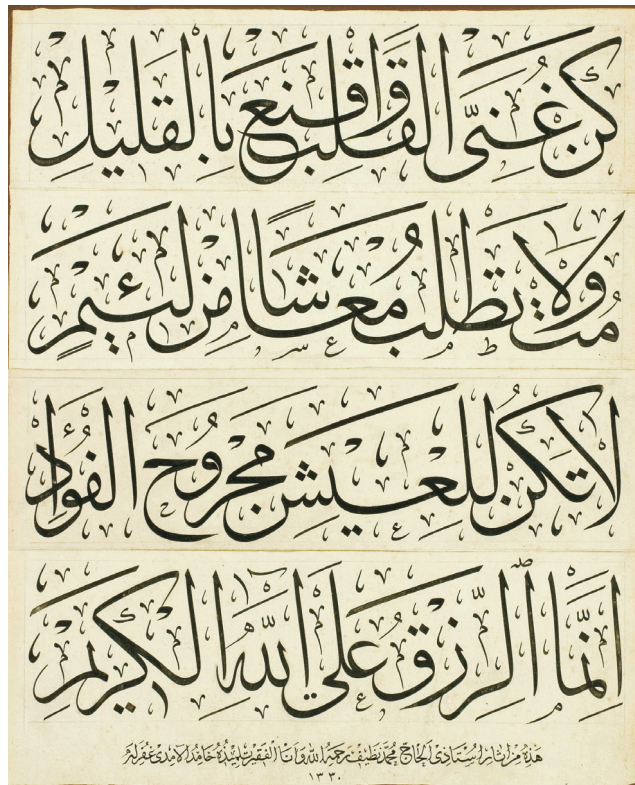 كن غنى القلب واقنع بالقليل
مت ولا تطلب معاشا من لئيم
لا تكن للعيش مجروح الفؤاد
إنما الرزق على الله الكريم
هذه من اثار استاذى الحاج محمد نظيف رحمه الله وانا الفقير تلميذه حامد الامدى غفر له
١٣٣٠